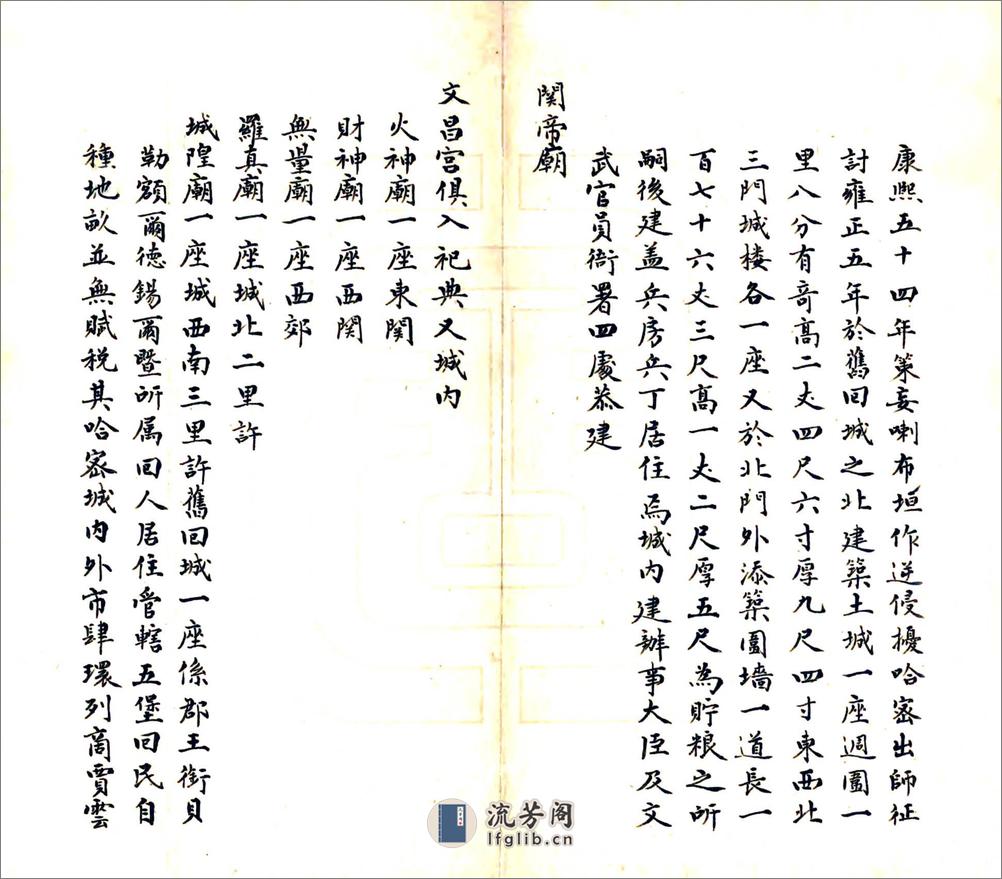 康熙五十四年策妄喇布垣作逆侵擾哈密出師征
討雍正五年於舊回城之北建築土城一座週圍一
里八分有奇高二丈四尺六寸厚九尺四寸東西北
三門城楼各一座又於北門外添築圍墻一道長一
百七十六丈三尺高一丈二尺厚五尺為貯粮之所
嗣後建盖兵房兵丁居住焉城内建辦事大臣及文
武官員衙署四處恭建
関帝廟
文昌宮俱入祀典又城内
火神廟一座東関
財神廟一座西関
無量廟一座西郊
羅真廟一座城北二里許
城隍廟一座城西南三里許舊回城一座係郡王銜貝
勒額爾德錫爾暨所属回人居住管轄五堡回民自
種地畝並無賦税其哈密城内外市肆環列商賈雲
流芳阁
lfglib.cn